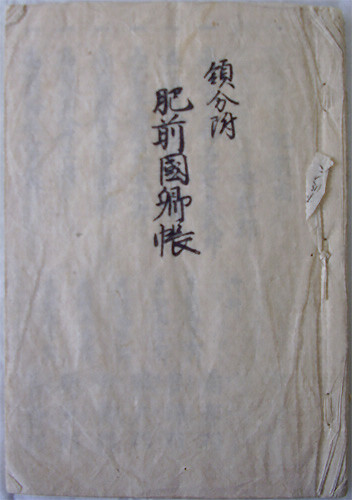 領分附
肥前國郷帳